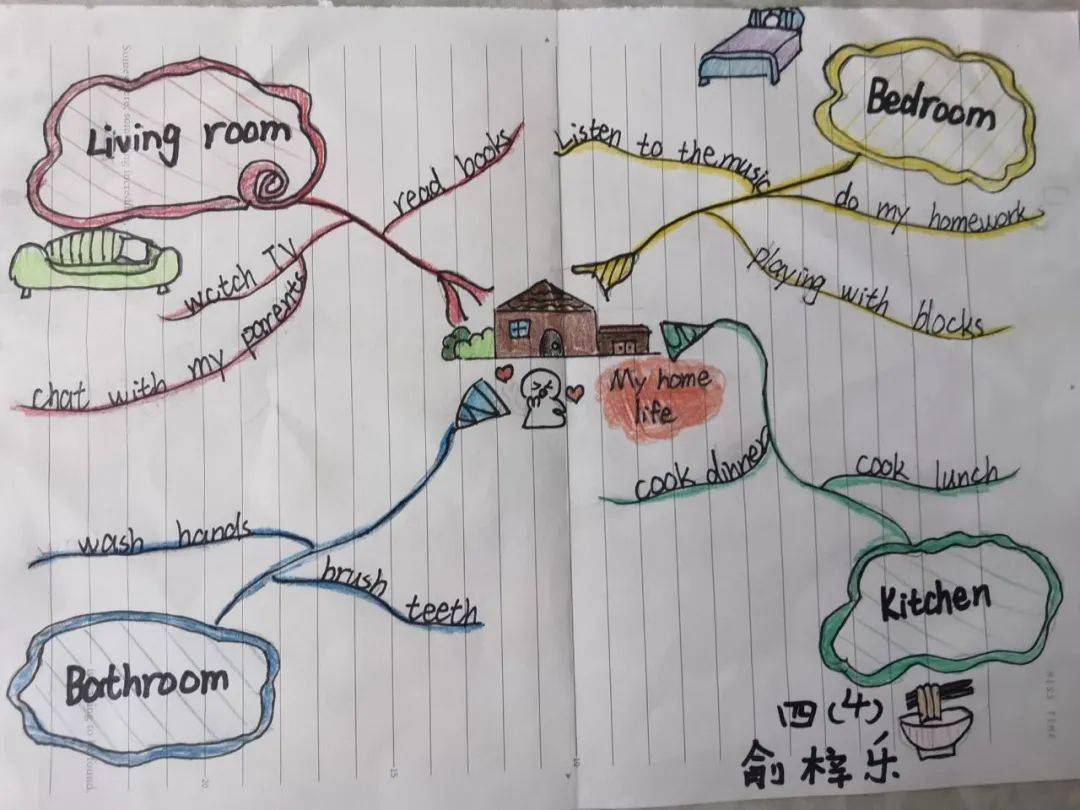 Living room
read books
watch TV
chat with my parents
Bedroom
Listen to the music
do my homework
playing with blocks
My home
life
cook dinner
cook lunch
Kitchen
wash hands
brush teeth
Bathroom
四(4)
俞梓乐
20
15
10